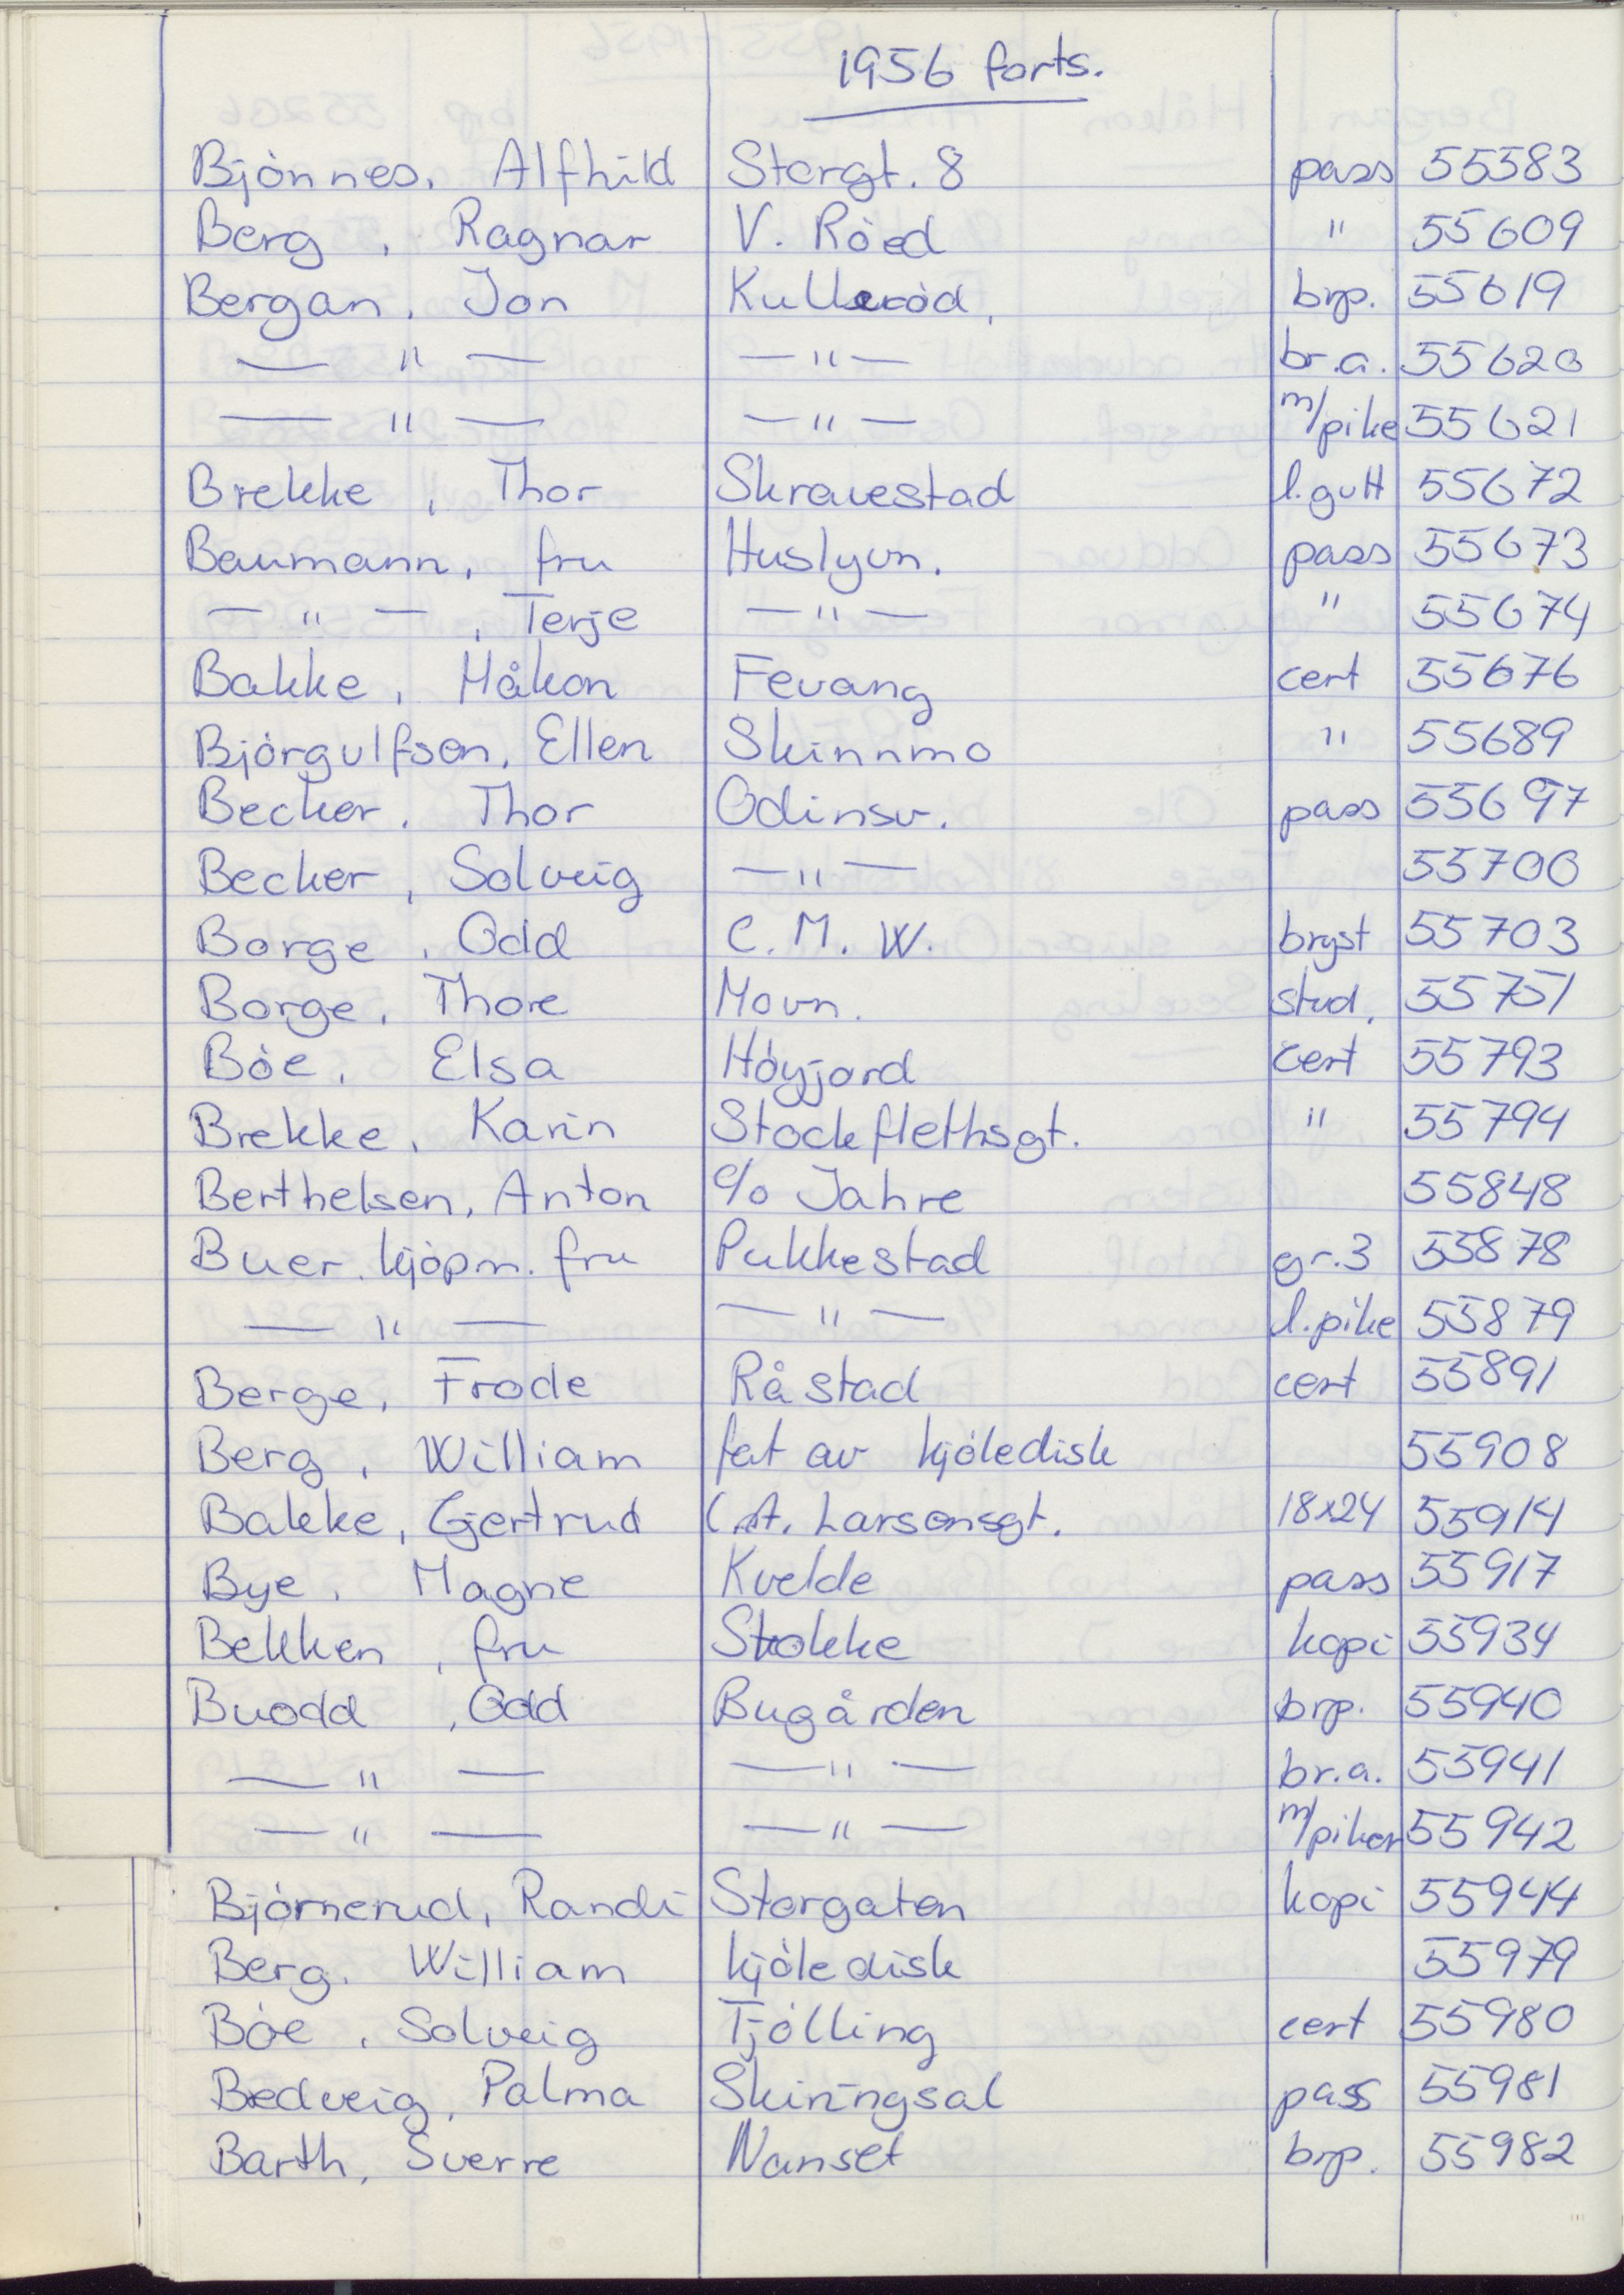 1956 forts.
Bjònnes, Alfhild Storgt. 8 pass 55583
Berg, Ragnar V. Ròed " 55609
Bergan, Jon Kulleròd, brp. 55619
— " — — " — br.a. 55620
— " — — " — m/pike 55621
Brekke, Thor Skravestad l.gutt 55672
Baumann, fru Huslyvn. pass 55673
— " —, Terje — " — " 55674
Bakke, Håkon Fevang cert 55676
Bjòrgulfsen, Ellen Skinnmo " 55689
Becker, Thor Odinsv. pass 55697
Becker, Solveig — " — 55700
Borge, Odd C. M. W. bryst 55703
Borge, Thore Movn. stud. 55751
Bòe, Elsa Hòyjord cert 55793
Brekke, Karin Stockflethsgt. " 55794
Berthelsen, Anton c/o Jahre 55848
Buer, kjòpm. fru Pukkestad gr.3 55878
— " — — " — l.pike 55879
Berge, Frode Råstad cert 55891
Berg, William fat av kjòledisk 55908
Bakke, Gjertrud C.A. Larsensgt. 18x24 55914
Bye, Magne Kvelde pass 55917
Bekken, fru Stokke kopi 55934
Buodd, Odd Bugården brp. 55940
— " — — " — br.a. 55941
— " — — " — m/piker 55942
Bjòrnerud, Randi Storgaten kopi 55944
Berg, William kjòledisk 55979
Bòe, Solveig Tjòlling cert 55980
Bredveig, Palma Skiringsal pass 55981
Barth, Sverre Nanset brp. 55982